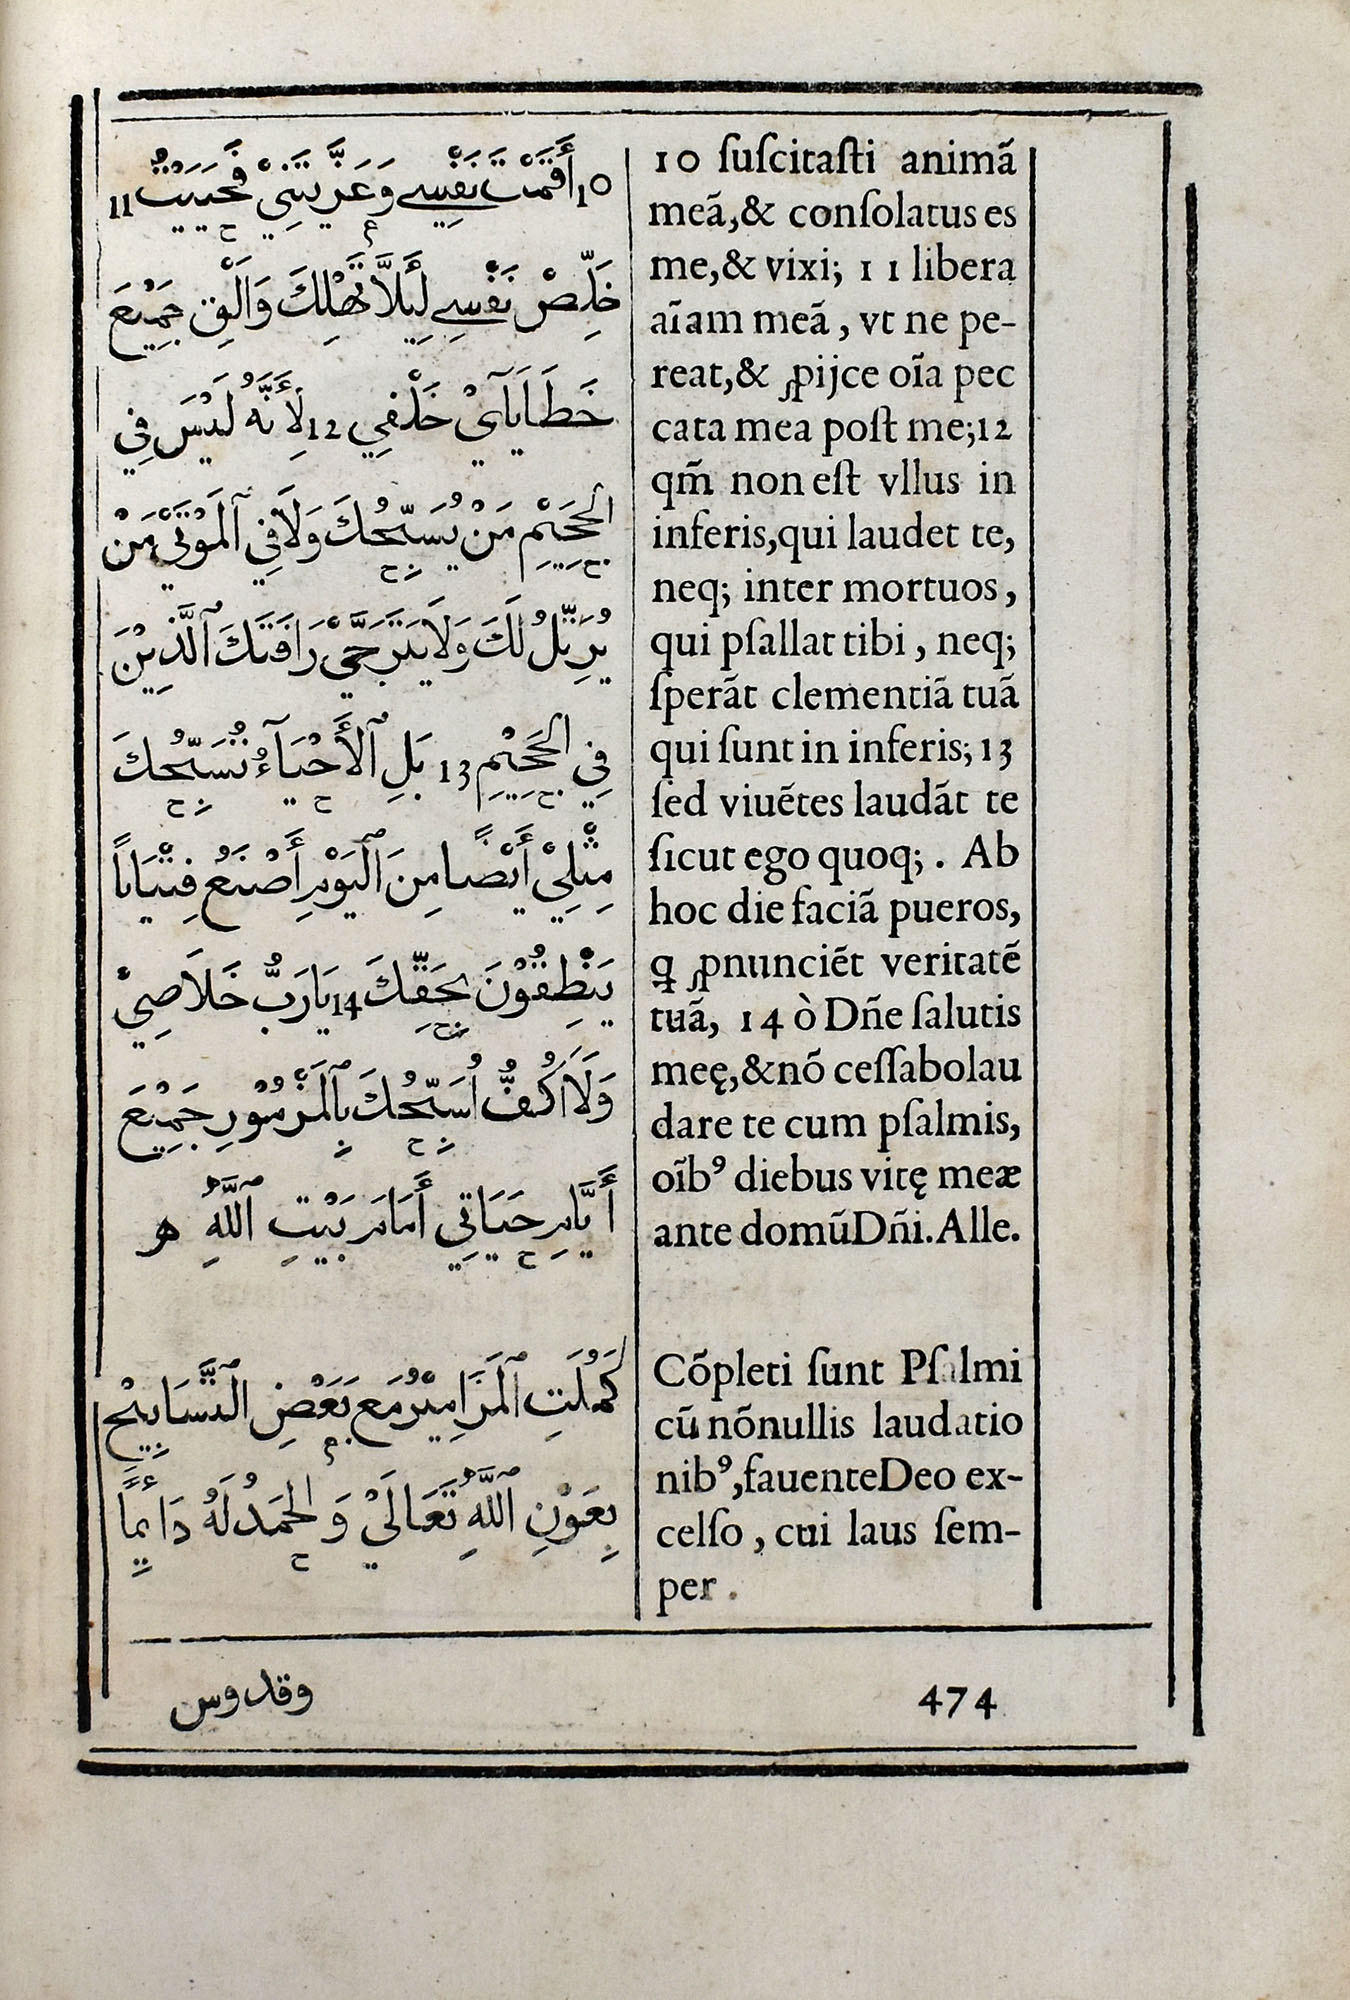 10 أَقَمْتَ نَفْسِي وَعَزَّيْتَنِيْ فَحَيَيْتُ 11
خَلِّصْ نَفْسِي لِيَلَّا تَهْلِكَ وَالْقِ جَمِيْعَ
خَطَايَايْ خَلْفِي 12 لِأَنَّهُ لَيْسَ فِي
الجَحِيْمِ مَنْ يُسَبِّحُكَ وَلَا فِي ٱلْمَوْتَيْ مَنْ
يُرَتِّلُ لَكَ وَلَا يَتَرَجَّيْ رَافَتَكَ ٱلَّذِيْنَ
فِي الجَحِيْمِ 13 بَلِ ٱلْأَحْيَآءُ تُسَبِّحُكَ
مِثْلِيْ أَيْضًا مِنَ ٱلْيَوْمِ أَصْنَعُ فِتْيَانًا
يَنْطِقُوْنَ بِحَقِّكَ 14 يَا رَبُّ خَلَاصِيْ
وَلَا اَكُفُّ اُسَبِّحُكَ بِٱلْمَزْمُوْرِ جَمِيْعَ
أَيَّامِ حَيَاتِي أَمَامَ بَيْتِ ٱللَّهِ ه
كَمُلَتِ ٱلْمَزَامِيْرُ مَعَ بَعْضِ ٱلتَّسَابِيْحِ
بِعَوْنِ ٱللَّهِ تَعَالَيْ وَالحَمْدُ لَهُ دَائِمًا
وقدوس
10 ſuſcitaſti animã
meã,& conſolatus es
me,& vixi; 11 libera
aĩam meã, vt ne pe-
reat,& ꝓijce oĩa pec
cata mea poſt me;12
qm̃ non eſt vllus in
inferis,qui laudet te,
neq; inter mortuos,
qui pſallat tibi, neq;
ſperãt clementiã tuã
qui ſunt in inferis; 13
ſed viuẽtes laudãt te
ſicut ego quoq;. Ab
hoc die faciã pueros,
q̃ ꝓnunciẽt veritatẽ
tuã, 14 ò Dñe ſalutis
meę,&nõ ceſſabolau
dare te cum pſalmis,
oĩbꝰ diebus vitę meæ
ante domũ Dñi. Alle.
Cõpleti ſunt Pſalmi
cũ nõnullis laudatio
nibꝰ,fauenteDeo ex-
celſo, cui laus ſem-
per.
474